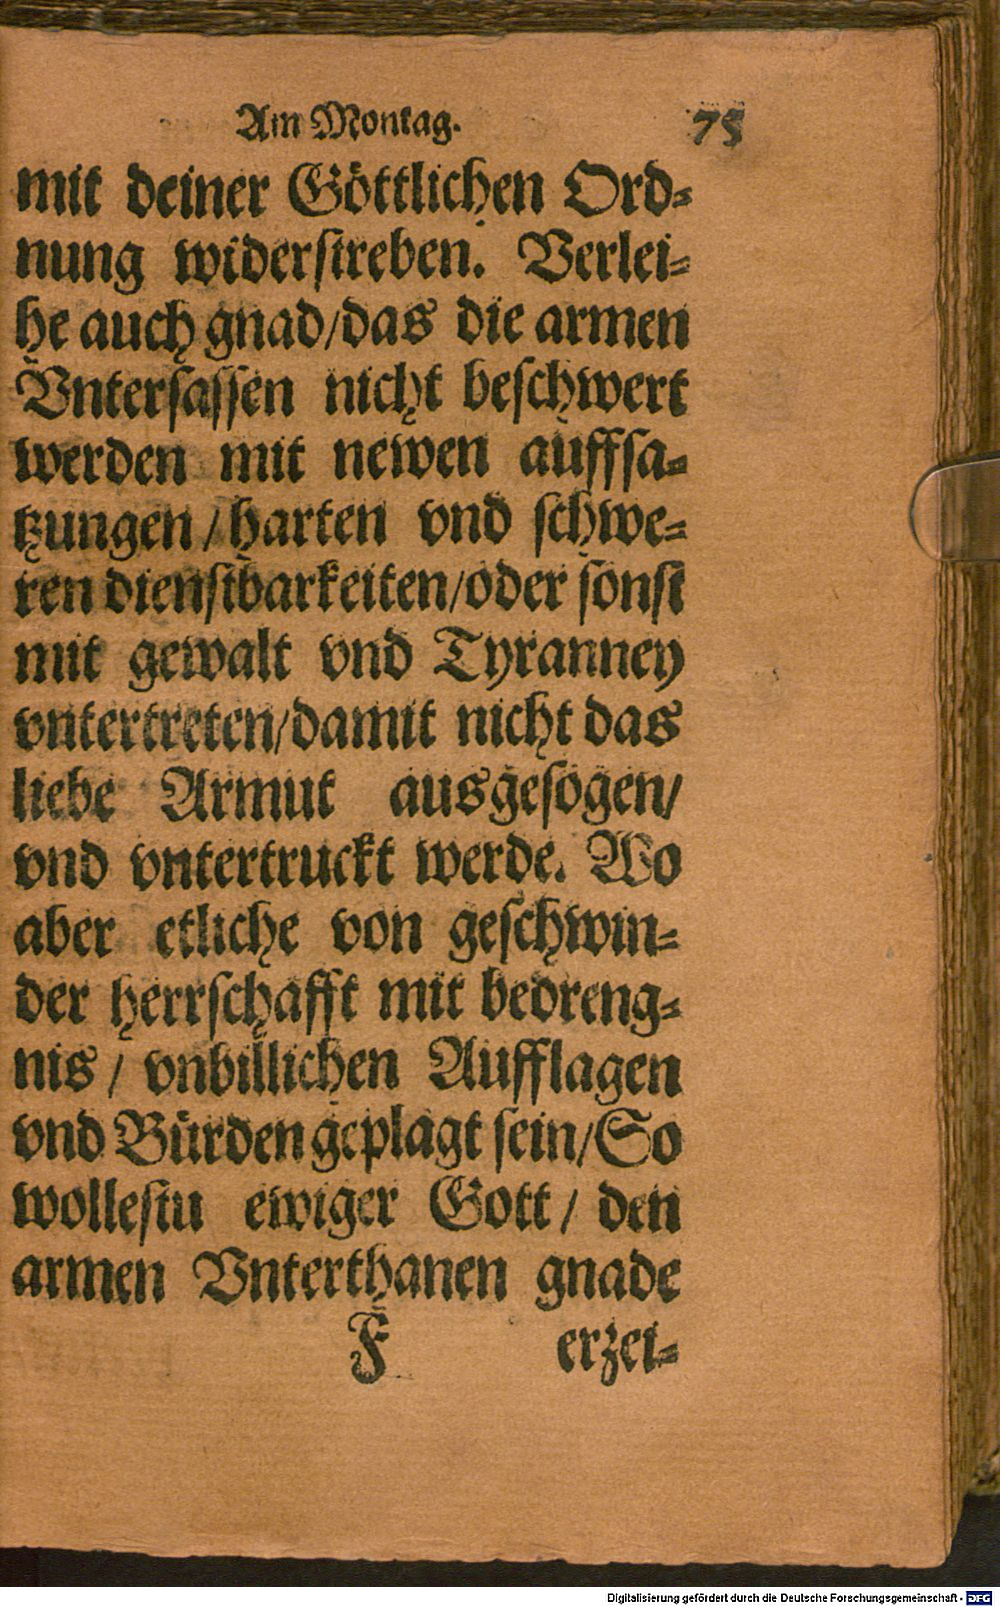 Am Montag. 75
mit deiner Göttlichen Ord⸗
nung widerstreben. Verlei⸗
he auch gnad/das die armen
Vntersassen nicht beschwert
werden mit newen auffsa⸗
tzungen/harten vnd schwe⸗
ren dienstbarkeiten/oder sonst
mit gewalt vnd Tyranney
vntertreten/damit nicht das
liebe Armut ausgesogen/
vnd vntertruckt werde. Wo
aber etliche von geschwin⸗
der herrschafft mit bedreng⸗
nis/ vnbillichen Aufflagen
vnd Bürden geplagt sein/So
wollestu ewiger Gott/ den
armen Vnterthanen gnade
F erzei⸗
Digitalisierung gefördert durch die Deutsche Forschungsgemeinschaft - DFG